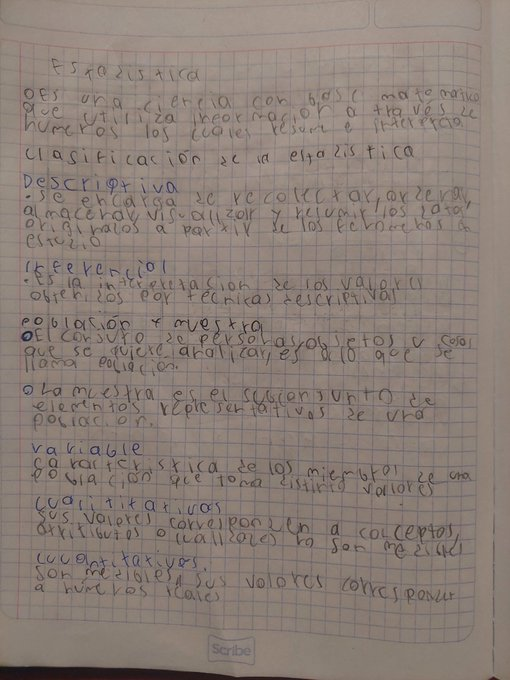 Estadistica
OEs una ciencia con base matematica
que utiliza informacion a traves de
numeros los cuales resume e interencia
clasificación de la estadistica
Descriptiva
•Se encarga de recolectar, ordenar,
almacenar, visualizar y resumir los datos
originalos a partir de los fenomenos a
estudio
Inferencial
•Es la interpretacion de los valores
obtenidos por tecnicas descriptivas
población y muestra
OEl conjunto de personas, objetos u cosas
que se quiere analizar, es a lo que se
llama poblacion.
OLa muestra es el subconjunto de
elementos representativos de una
poblacion.
variable
caracteristica de los miembros de una
poblacion que toma distinto valores
cualititativas
sus valores corresponden a conceptos,
atributos o cualidades no son medibles
cucantitativos.
son medibles, sus valores corresponden
a numeros reales
Scribe